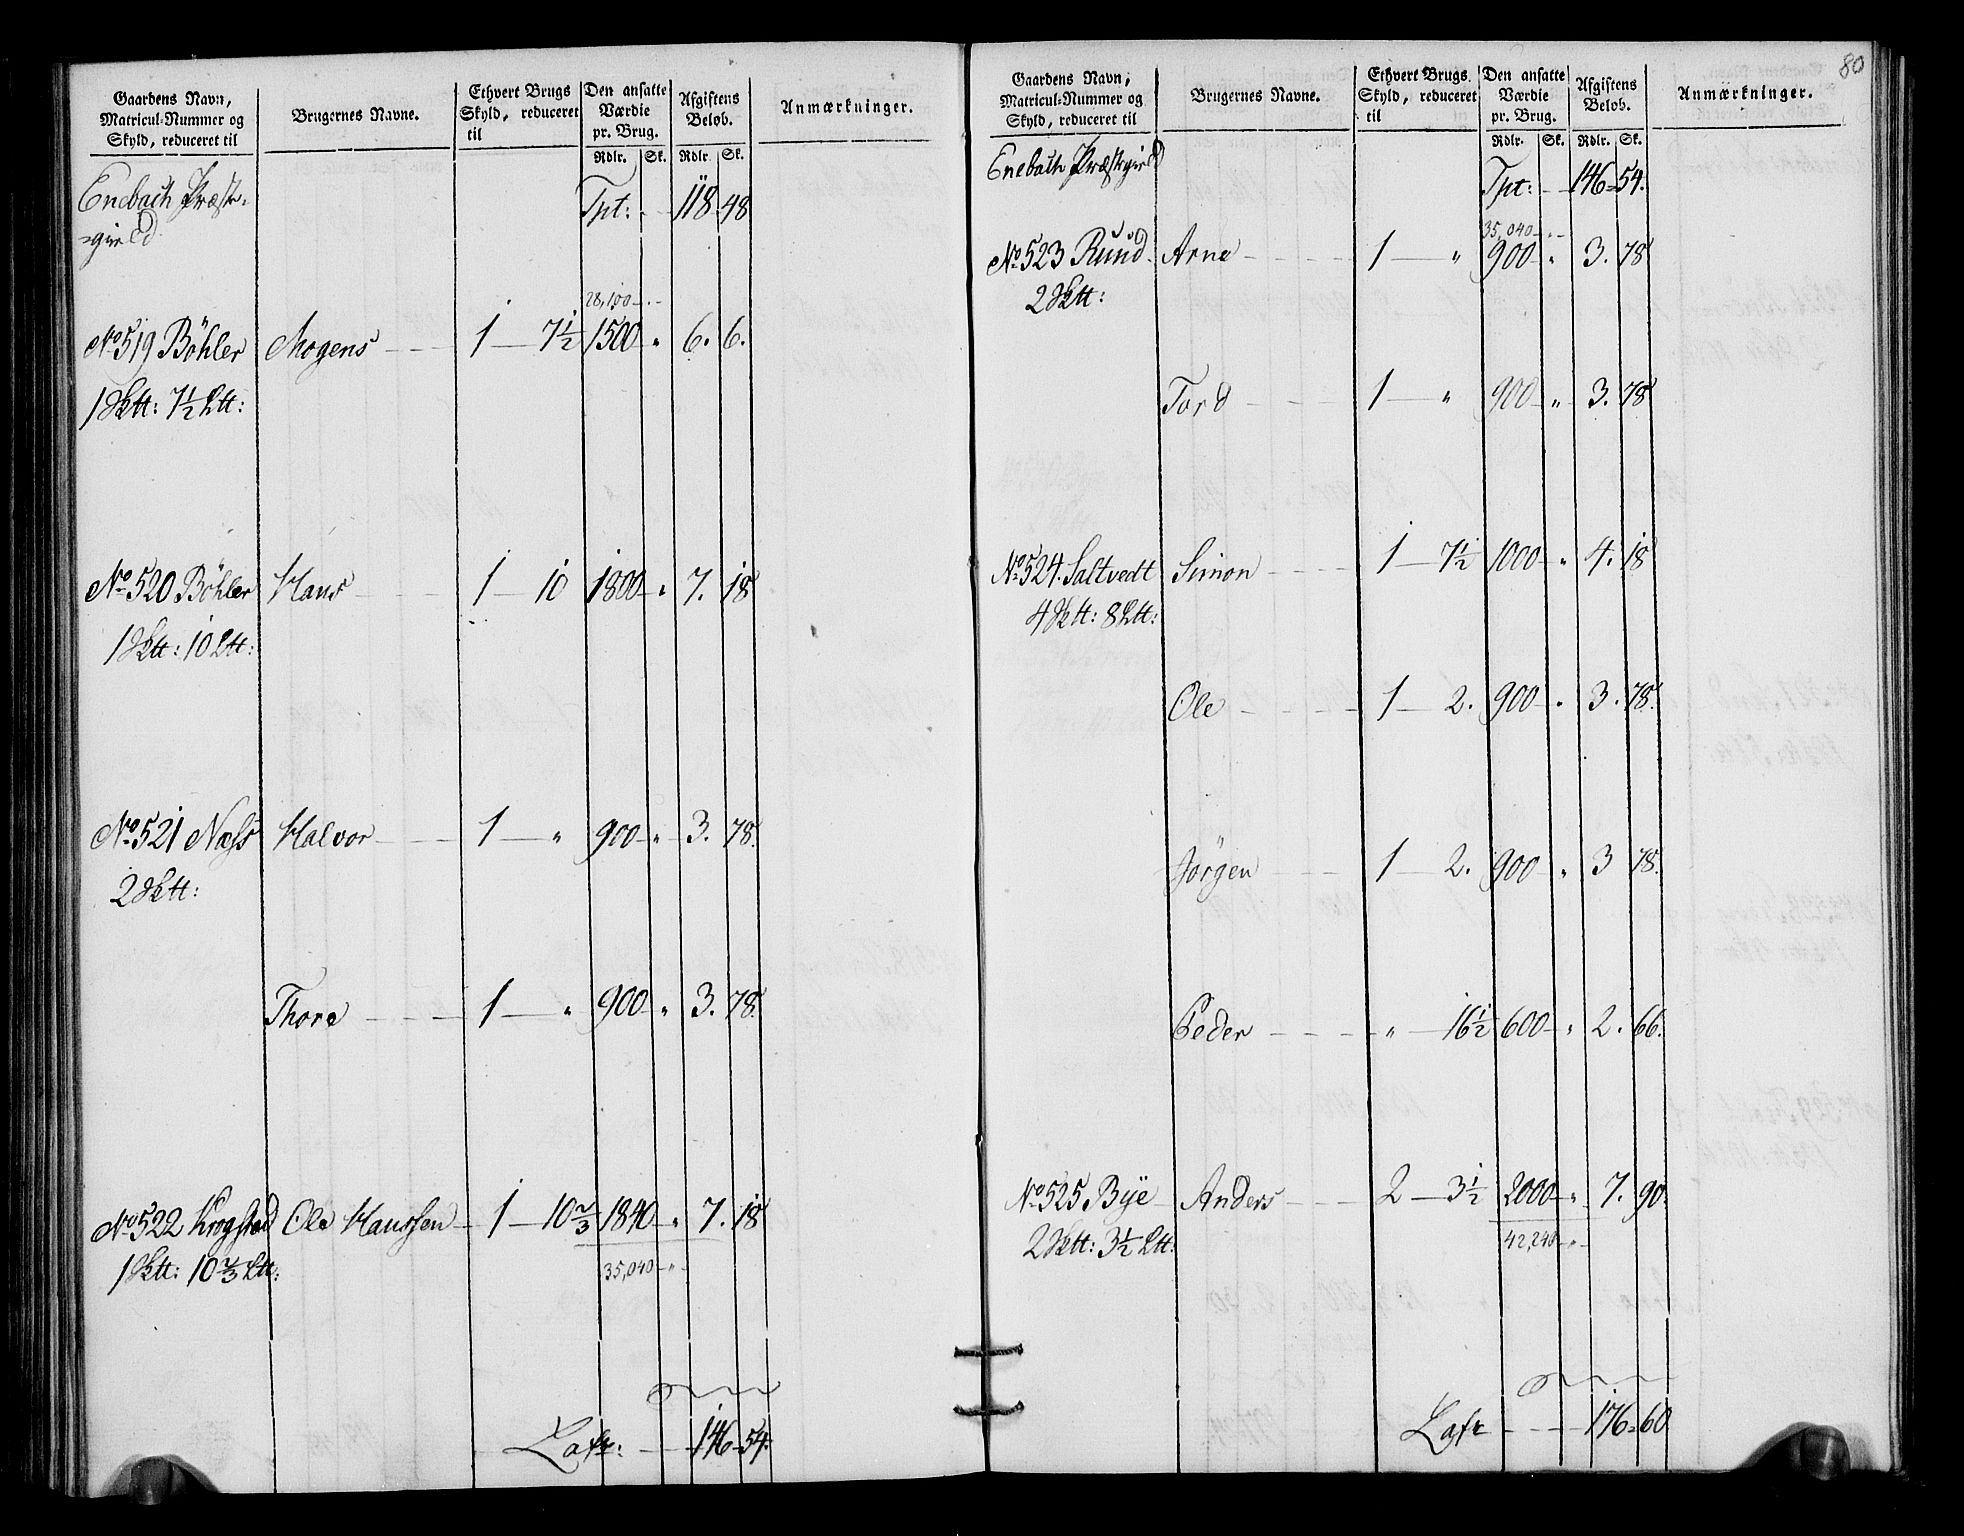 Gaardens Navn, Matricul-Nummer og Skyld, reduceret til | Brugernes Navne. | Ethvert Brugs Skyld, reduceret til | Den ansatte Værdie pr. Brug. Rdlr. Sk. | Afgiftens Beløb. Rdlr. Sk. | Anmærkninger.
Enebach Præste-
=gield. Tpt: 118 48
28,100 - " -
No 519 Böhler Mogens 1 — 7½ 1500 " 6. 6.
1 Sktt: 7½ Ltt:
No 520 Böhler Hans 1 — 10 1800 " 7. 18
1 Sktt: 10 Ltt:
No 521 Næss Halvor 1 — " 900 " 3. 78.
2 Sktt:
Thore 1 — " 900 " 3. 78.
No 522 Krogstad Ole Hanssen 1 — 10⅔ 1840 " 7. 18
1 Sktt: 10⅔ Ltt:
35,040 - " -
Latr: 146 - 54.
80
Gaardens Navn, Matricul-Nummer og Skyld, reduceret til | Brugernes Navne. | Ethvert Brugs Skyld, reduceret til | Den ansatte Værdie pr. Brug. Rdlr. Sk. | Afgiftens Beløb. Rdlr. Sk. | Anmærkninger.
Enebach Præstegield
Tpt: 146 = 54.
35,040 - " -
No 523 Ruud Arne 1 — " 900 " 3. 78
2 Sktt:
Tord 1 — " 900 " 3. 78
No 524. Saltvedt Simon 1 — 7½ 1000 " 4. 18
4 Sktt: 8 Ltt:
Ole 1 — 2. 900 " 3. 78.
Jörgen 1 — 2. 900 " 3 78.
Peder " — 16½ 600 " 2. 66.
No 525 Bÿe Anders 2 — 3½ 2000 " 7. 90.
2 Sktt: 3½ Ltt:
42,240 - " -
Latr 176 = 60